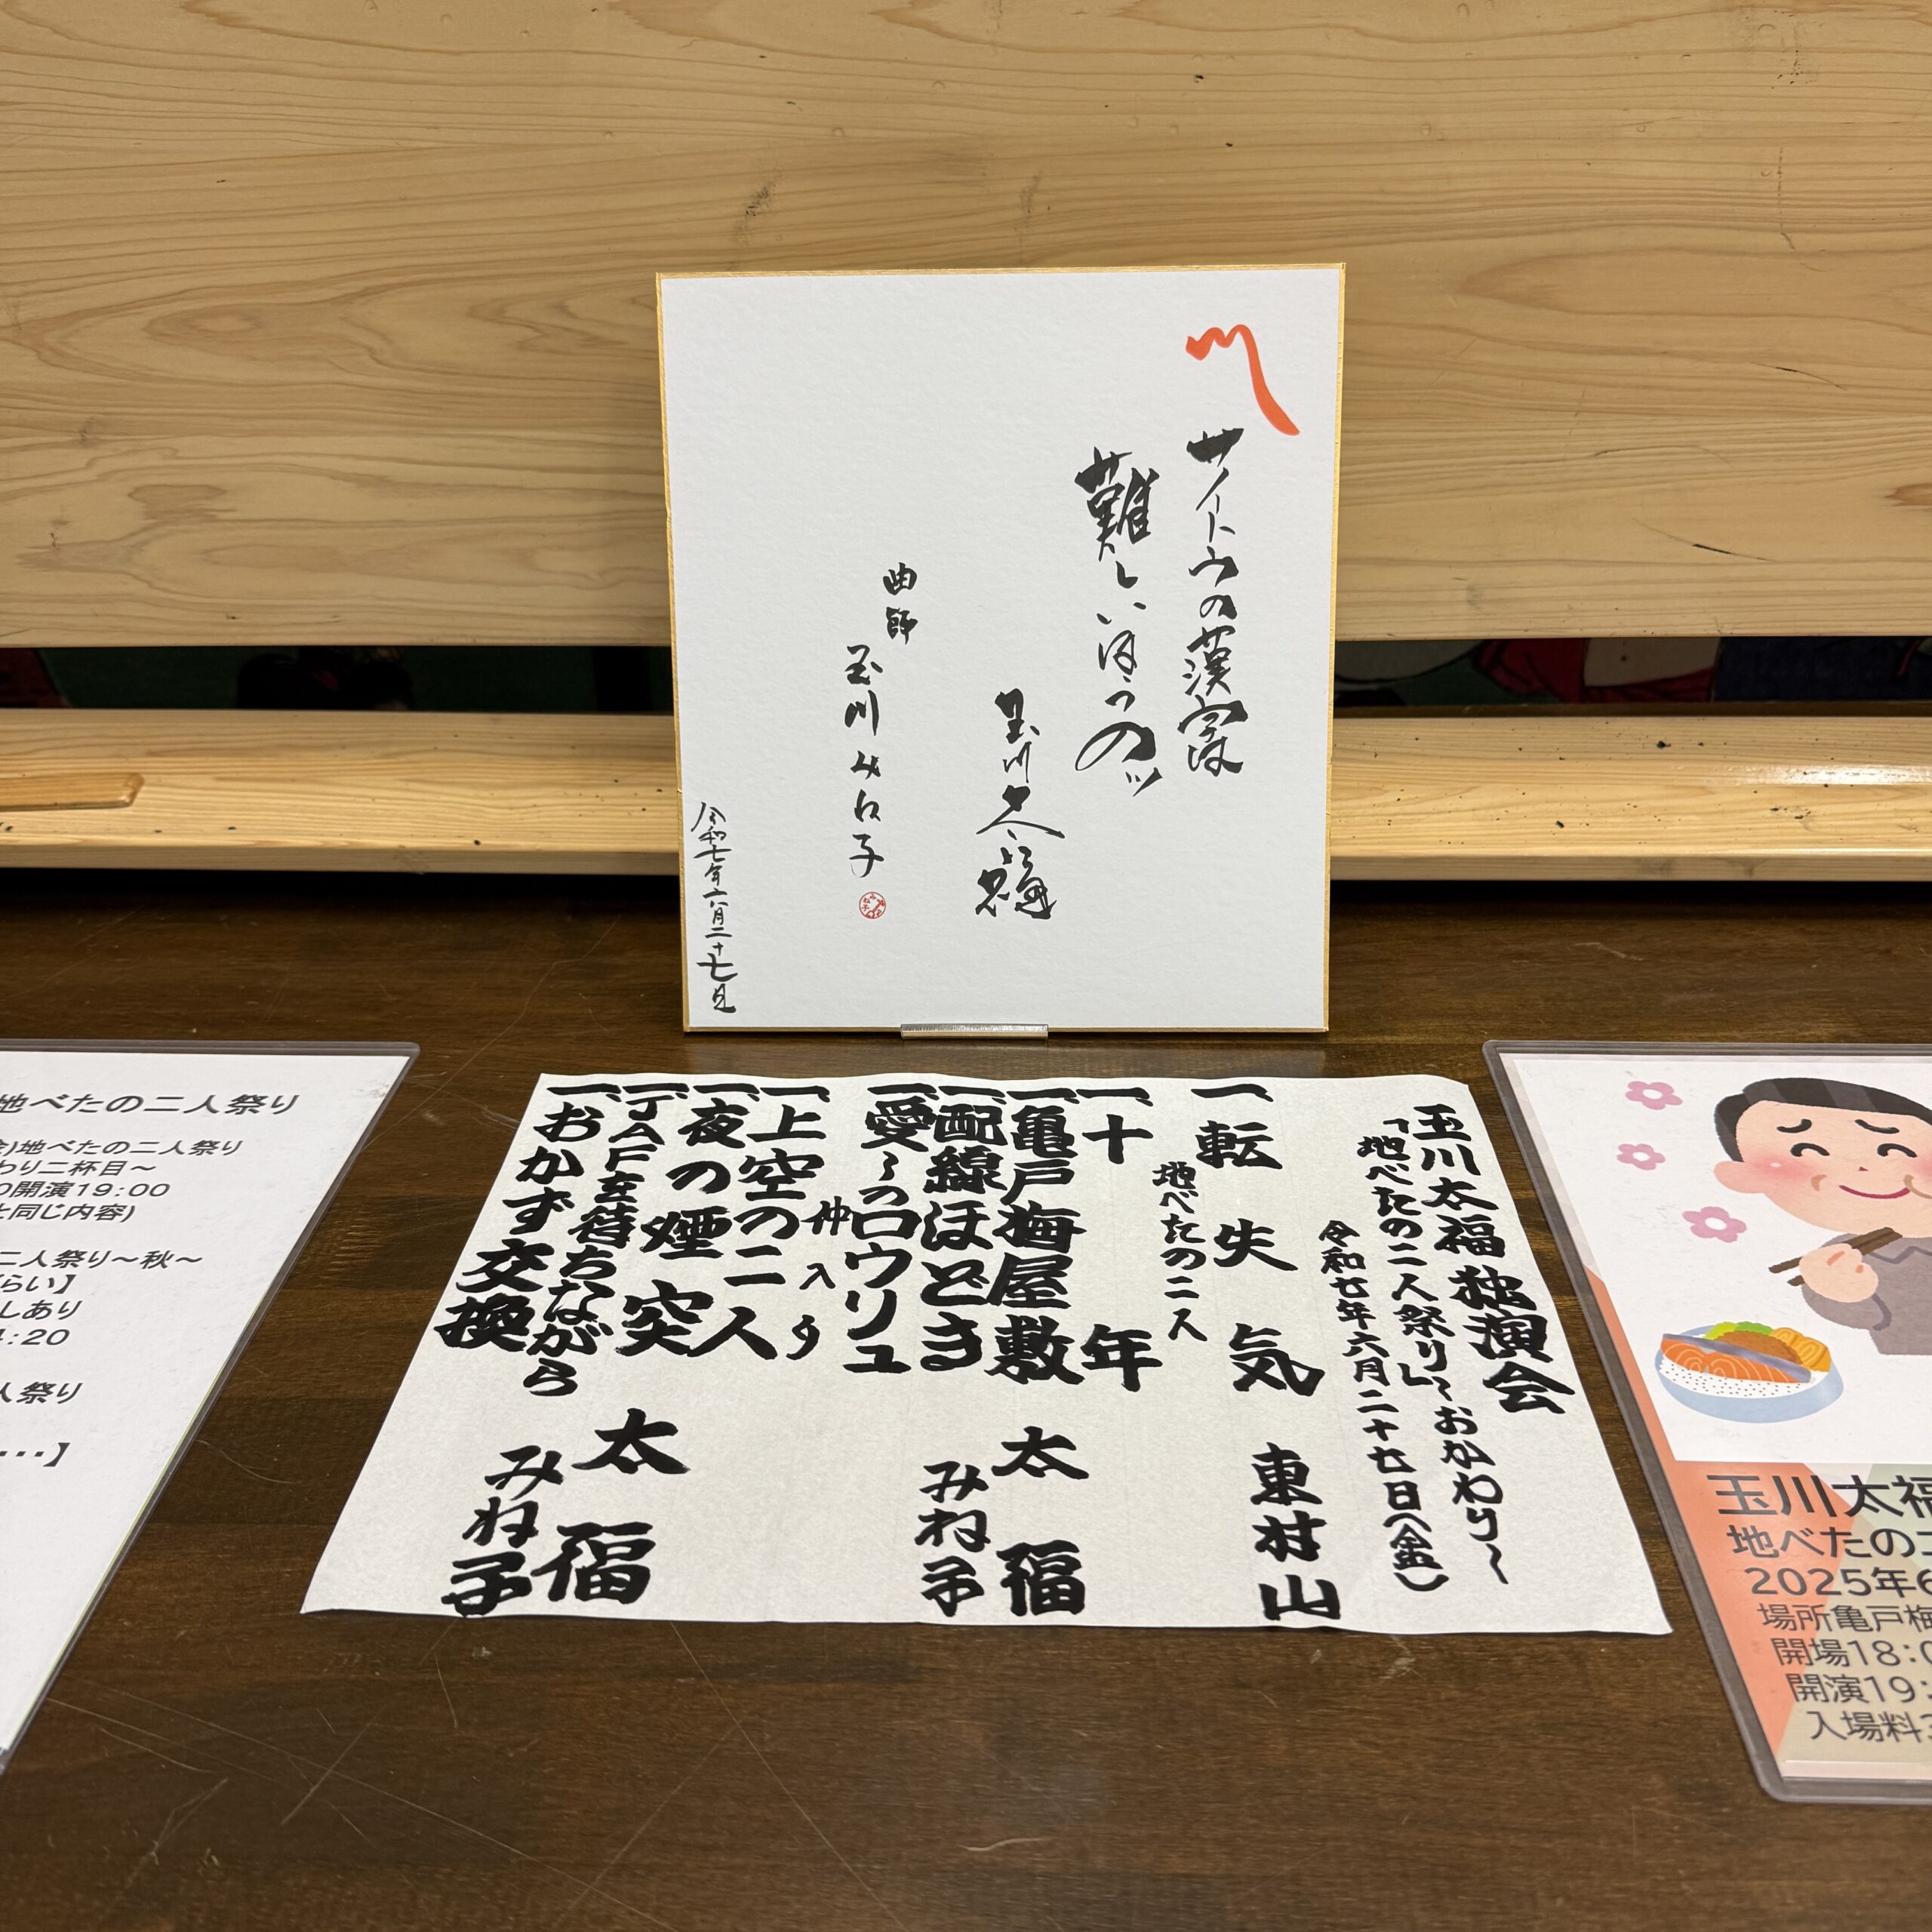 サイトウの漢字は
難しいほうのッ
玉川太福
曲師
玉川みね子
令和七年六月二十七日
玉川太福独演会
「地べたの二人祭り」~おかわり~
令和七年六月二十七日(金)
一、転失気 東村山
地べたの二人
一、十年
一、亀戸梅屋敷 太福
一、配線ほどき みね子
一、愛~のロウリュ
仲入り
一、上空の二人
一、夜の煙突
一、JAFを待ちながら 太福
一、おかず交換 みね子
地べたの二人祭り
)地べたの二人祭り
わり二杯目~
0開演19:00
と同じ内容)
二人祭り~秋~
らい】
しあり
:20
人祭り
・・・】
玉川太福
地べたの二
2025年6
場所亀戸梅
開場18:0
開演19:
入場料